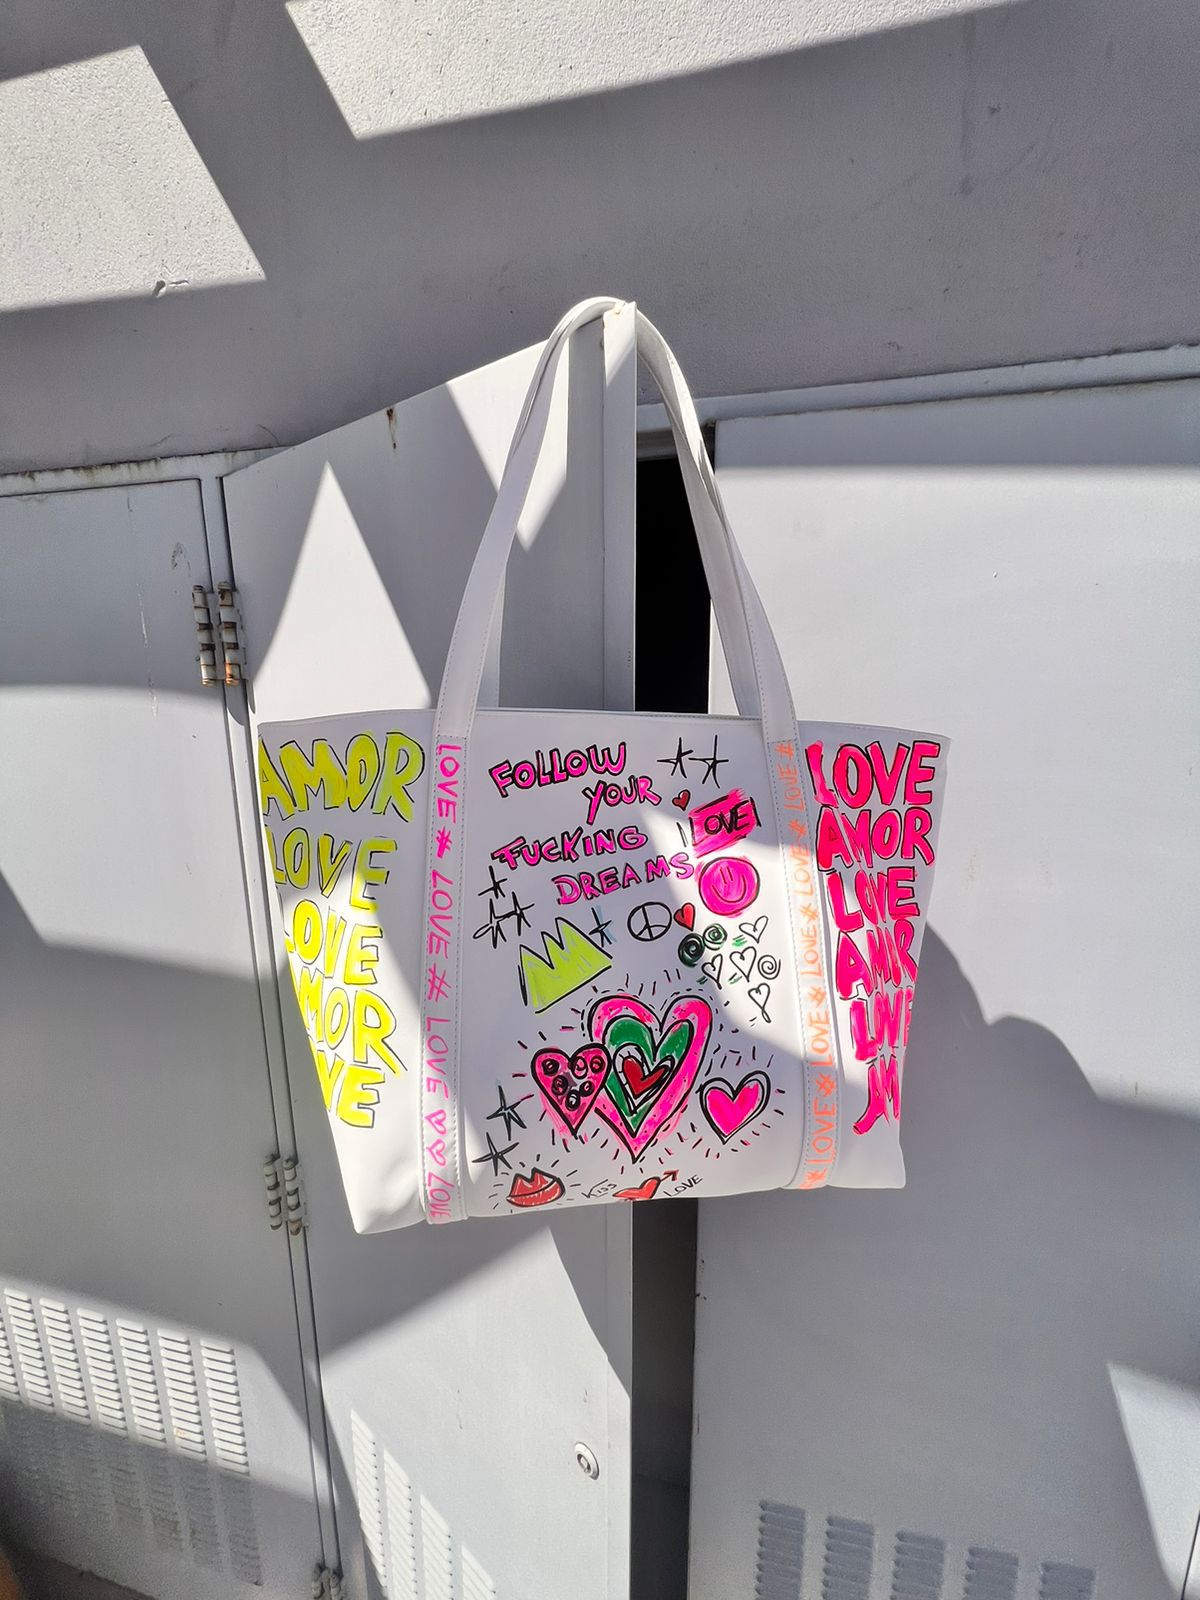 AMOR
LOVE
LOVE
AMOR
LOVE # LOVE # LOVE LOVE
FOLLOW
YOUR
FUCKING
DREAMS
LOVE
KISS
LOVE
LOVE * LOVE * LOVE * LOVE * LOVE #
LOVE
AMOR
LOVE
AMOR
LOVE
AM